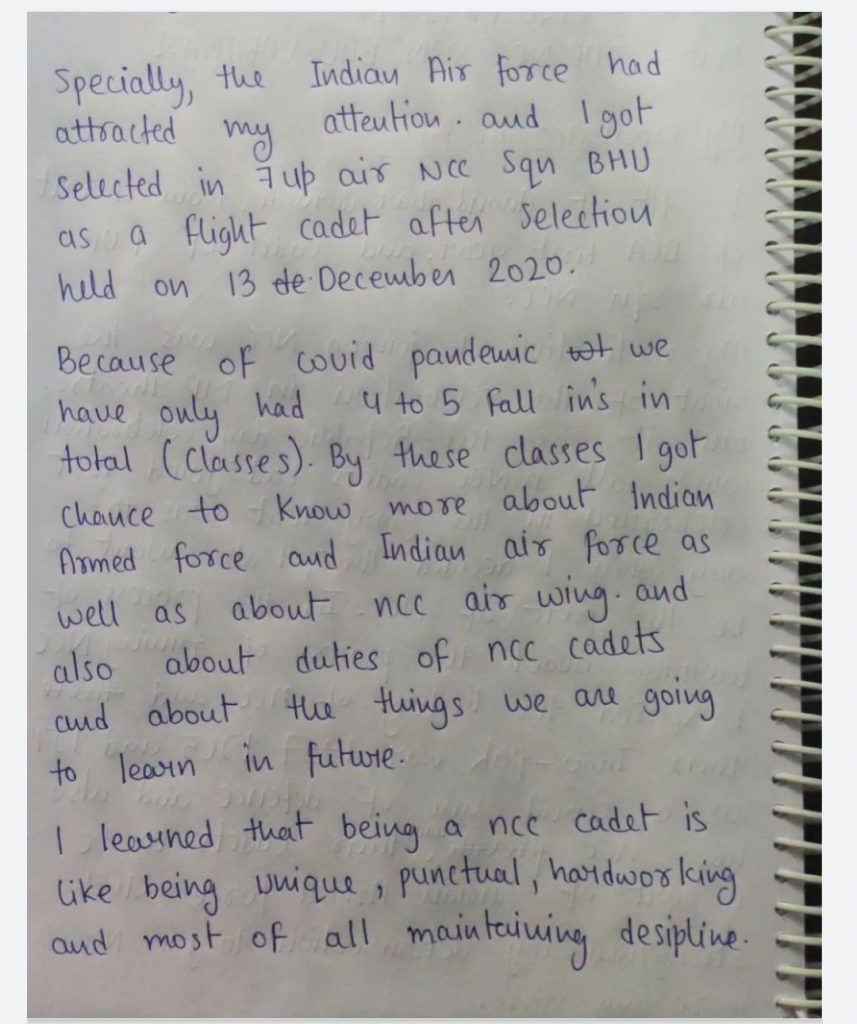 Specially, the Indian Air force had
attracted my attention. and I got
selected in 7 up air NCC Sqn BHU
as a flight cadet after selection
held on 13 de December 2020.
Because of covid pandemic wt we
have only had 4 to 5 fall in's in
total (Classes). By these classes I got
chance to know more about Indian
Armed force and Indian air force as
well as about ncc air wing. and
also about duties of ncc cadets
and about the things we are going
to learn in future.
I learned that being a ncc cadet is
like being unique, punctual, hardworking
and most of all maintaining desipline.